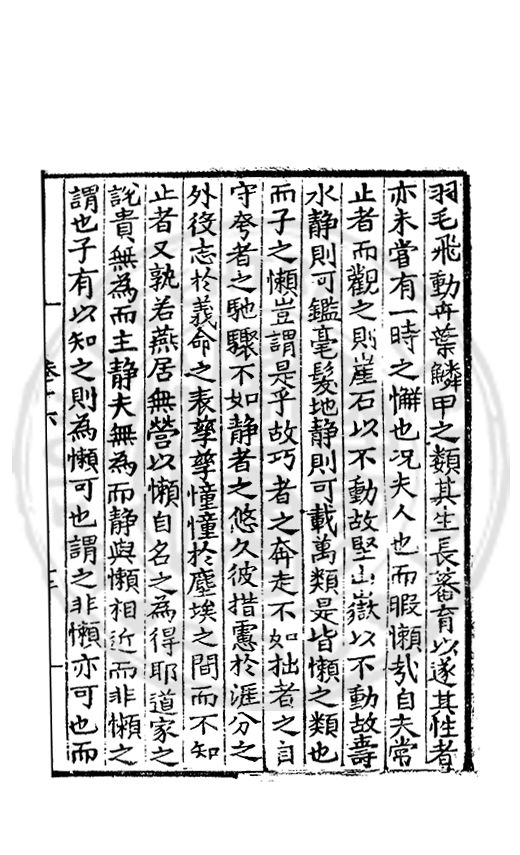 羽毛飛動卉葉鱗甲之類其生長蕃育以遂其性者
亦未嘗有一時之懈也况夫人也而暇懶㢤自夫常
止者而觀之則崖石以不動故堅山嶽以不動故壽
水静則可鑑毫髮地静則可載萬類是皆懶之類也
而子之懶豈謂是乎故巧者之奔走不如拙者之自
守夸者之馳驟不如静者之悠久彼措慮於涯分之
外役志於義命之表孳孳憧憧於塵埃之間而不知
止者又孰若燕居無營以懶自名之為得耶道家之
說貴無為而主静夫無為而静與懶相近而非懶之
謂也子有以知之則為懶可也謂之非懶亦可也而
卷十六